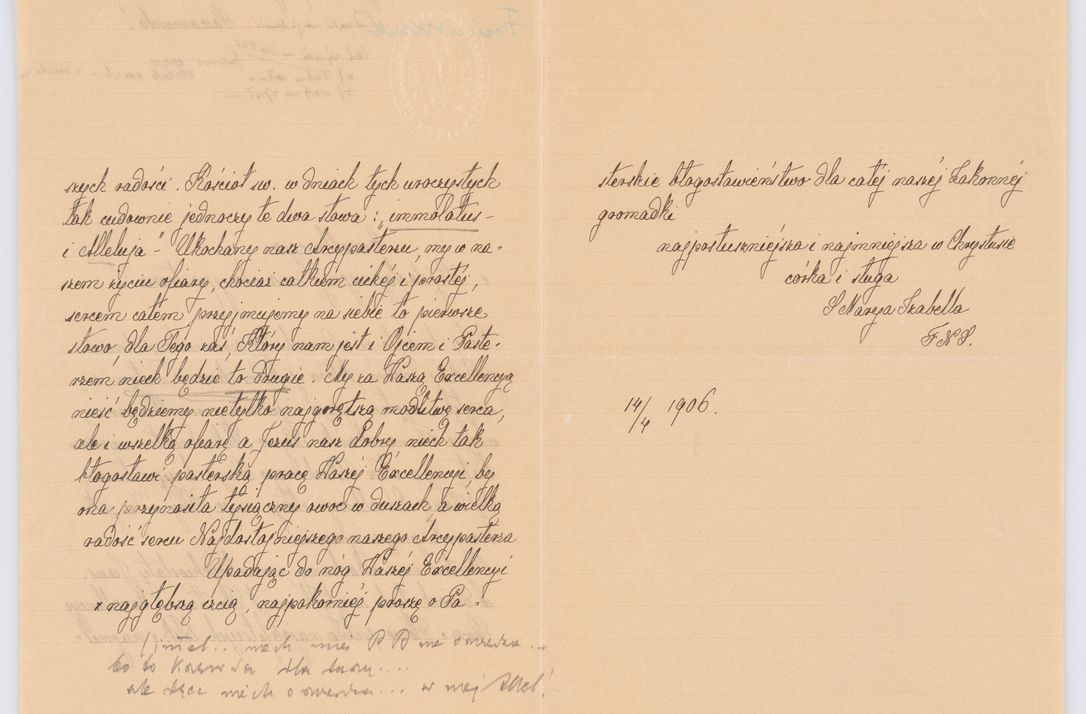 szych radości. Kościoł św. w dniach tych uroczystych
tak cudownie jednoczy te dwa słowa: „immolatus -
i Alleluja" - Ukochany nasz Arcypasterzu, my w na-
szem życiu ofiary, chociaż całkiem cichéj i prostéj,
sercem całem przyjmujemy na siebie to pierwsze
słowo, dla Tego zaś, Który nam jest i Ojcem i Paste-
rzem niech będzie to drugie. My za Waszą Excellencyą
nieść będziemy nietylko najgorętszą modlitwę serca,
ale i wszelką ofiarę a Jezus nasz dobry niech tak
błogosławi pasterską pracę Waszéj Excellencyi, by
ona przynosiła tysiączny owoc w duszach, a wielką
radość sercu Najdostojniejszego naszego Arcypasterza
Upadając do nóg Waszéj Excellencyi
z najgłębszą czcią, najpokorniéj proszę o Pa-
niech
dla
ale niech w mej
sterskie błogosławieństwo dla całéj naszéj Zakonnéj
gromadki
najposłuszniejsza i najmniejsza w Chrystusie
córka i sługa
S Marya Izabella
F.N.S.
14/4 1906.